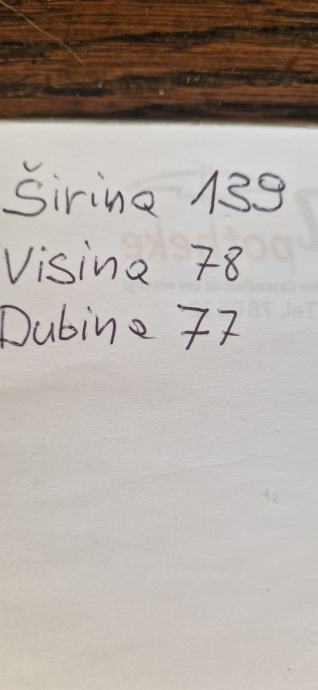 Širina 139
Visina 78
Dubina 77